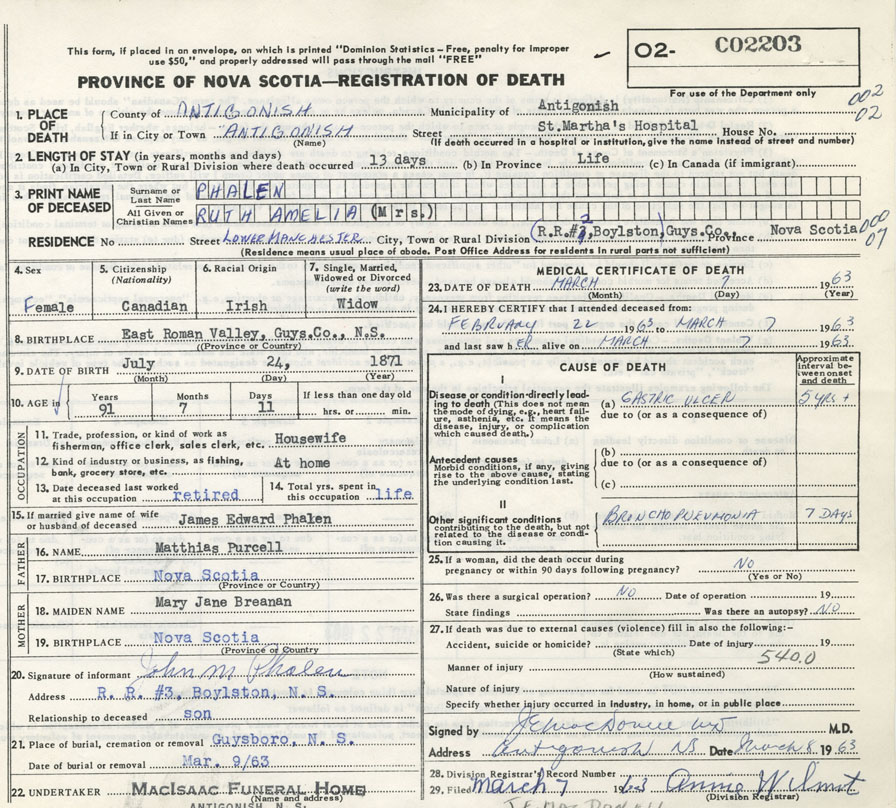 This form, if placed in an envelope, on which is printed "Dominion Statistics – Free, penalty for improper
use $50," and properly addressed will pass through the mail "FREE"
O2- C02203
PROVINCE OF NOVA SCOTIA—REGISTRATION OF DEATH
For use of the Department only
002
02
1. PLACE OF DEATH { County of ANTIGONISH Municipality of Antigonish
If in City or Town ANTIGONISH (Name) Street St.Martha's Hospital House No.
(If death occurred in a hospital or institution, give the name instead of street and number)
2. LENGTH OF STAY (in years, months and days)
(a) In City, Town or Rural Division where death occurred 13 days (b) In Province Life (c) In Canada (if immigrant)
3. PRINT NAME OF DECEASED { Surname or Last Name PHALEN
All Given or Christian Names RUTH AMELIA (Mrs.)
RESIDENCE No Street LOWER MANCHESTER City, Town or Rural Division (R.R.#3, Boylston, Guys.Co., Province Nova Scotia
2
000
07
(Residence means usual place of abode. Post Office Address for residents in rural parts not sufficient)
4. Sex Female
5. Citizenship (Nationality) Canadian
6. Racial Origin Irish
7. Single, Married, Widowed or Divorced (write the word) Widow
8. BIRTHPLACE East Roman Valley, Guys.Co., N.S.
(Province or Country)
9. DATE OF BIRTH July 24, 1871
(Month) (Day) (Year)
10. AGE in Years 91 Months 7 Days 11 If less than one day old hrs. or min.
OCCUPATION
11. Trade, profession, or kind of work as fisherman, office clerk, sales clerk, etc. Housewife
12. Kind of industry or business, as fishing, bank, grocery store, etc. At home
13. Date deceased last worked at this occupation retired
14. Total yrs. spent in this occupation life
15. If married give name of wife or husband of deceased James Edward Phalen
FATHER
16. NAME Matthias Purcell
17. BIRTHPLACE Nova Scotia
(Province or Country)
MOTHER
18. MAIDEN NAME Mary Jane Breanan
19. BIRTHPLACE Nova Scotia
(Province or Country)
20. Signature of informant John M Phalen
Address R. R. #3, Boylston, N. S.
Relationship to deceased son
21. Place of burial, cremation or removal Guysboro, N. S.
Date of burial or removal Mar. 9/63
22. UNDERTAKER MACISAAC FUNERAL HOME
(Name and address)
ANTIGONISH, N. S.
MEDICAL CERTIFICATE OF DEATH
23. DATE OF DEATH MARCH 7 1963
(Month) (Day) (Year)
24. I HEREBY CERTIFY that I attended deceased from:
FEBRUARY 22 1963 to MARCH 7 1963
and last saw hER alive on MARCH 7 1963
CAUSE OF DEATH
Approximate interval between onset and death
I
Disease or condition directly leading to death (This does not mean the mode of dying, e.g., heart failure, asthenia, etc. It means the disease, injury, or complication which caused death.)
(a) GASTRIC ULCER 5 yrs +
due to (or as a consequence of)
Antecedent causes
Morbid conditions, if any, giving rise to the above cause, stating the underlying condition last.
(b)
due to (or as a consequence of)
(c)
II
Other significant conditions contributing to the death, but not related to the disease or condition causing it.
BRONCHOPNEUMONIA 7 DAYS
25. If a woman, did the death occur during pregnancy or within 90 days following pregnancy? NO
(Yes or No)
26. Was there a surgical operation? NO Date of operation 19
State findings Was there an autopsy? NO
27. If death was due to external causes (violence) fill in also the following:–
Accident, suicide or homicide? Date of injury 19
(State which)
540.0
Manner of injury
(How sustained)
Nature of injury
Specify whether injury occurred in industry, in home, or in public place
Signed by M.D.
Address Antigonish NS Date March 8 1963
28. Division Registrar's Record Number
29. Filed March 7 1963 Annie Wilmot
(Division Registrar)